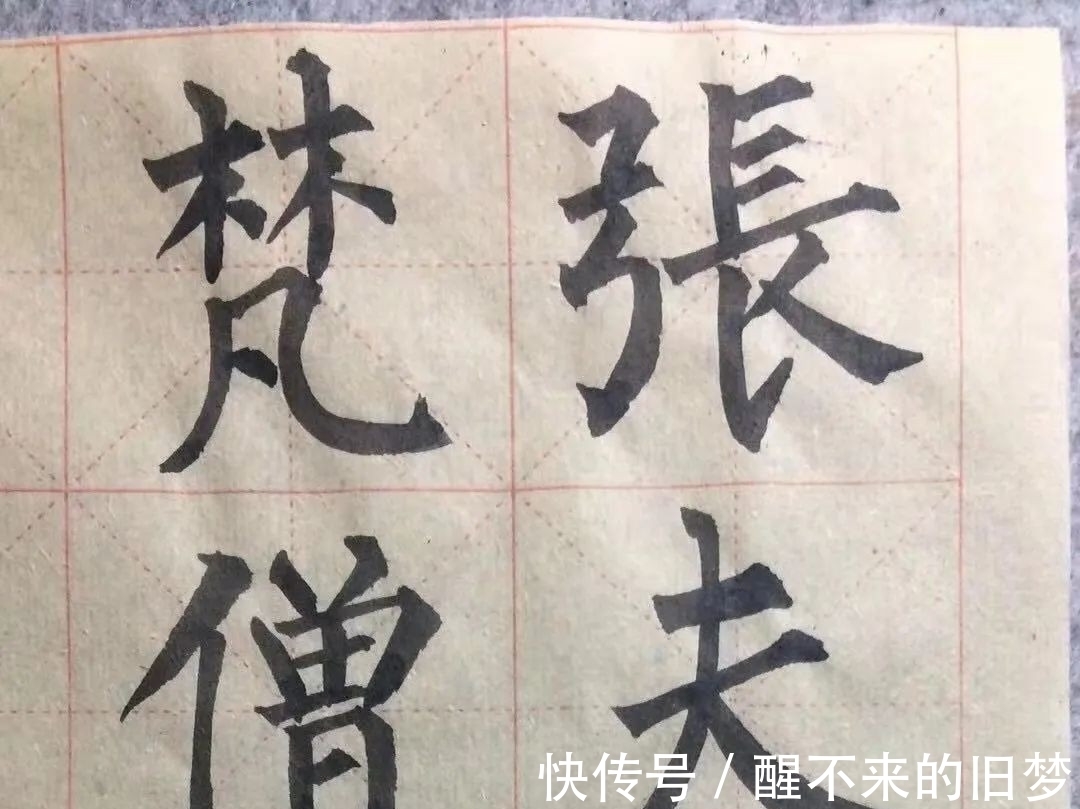 張夫
梵僧
快传号 / 醒不来的旧梦